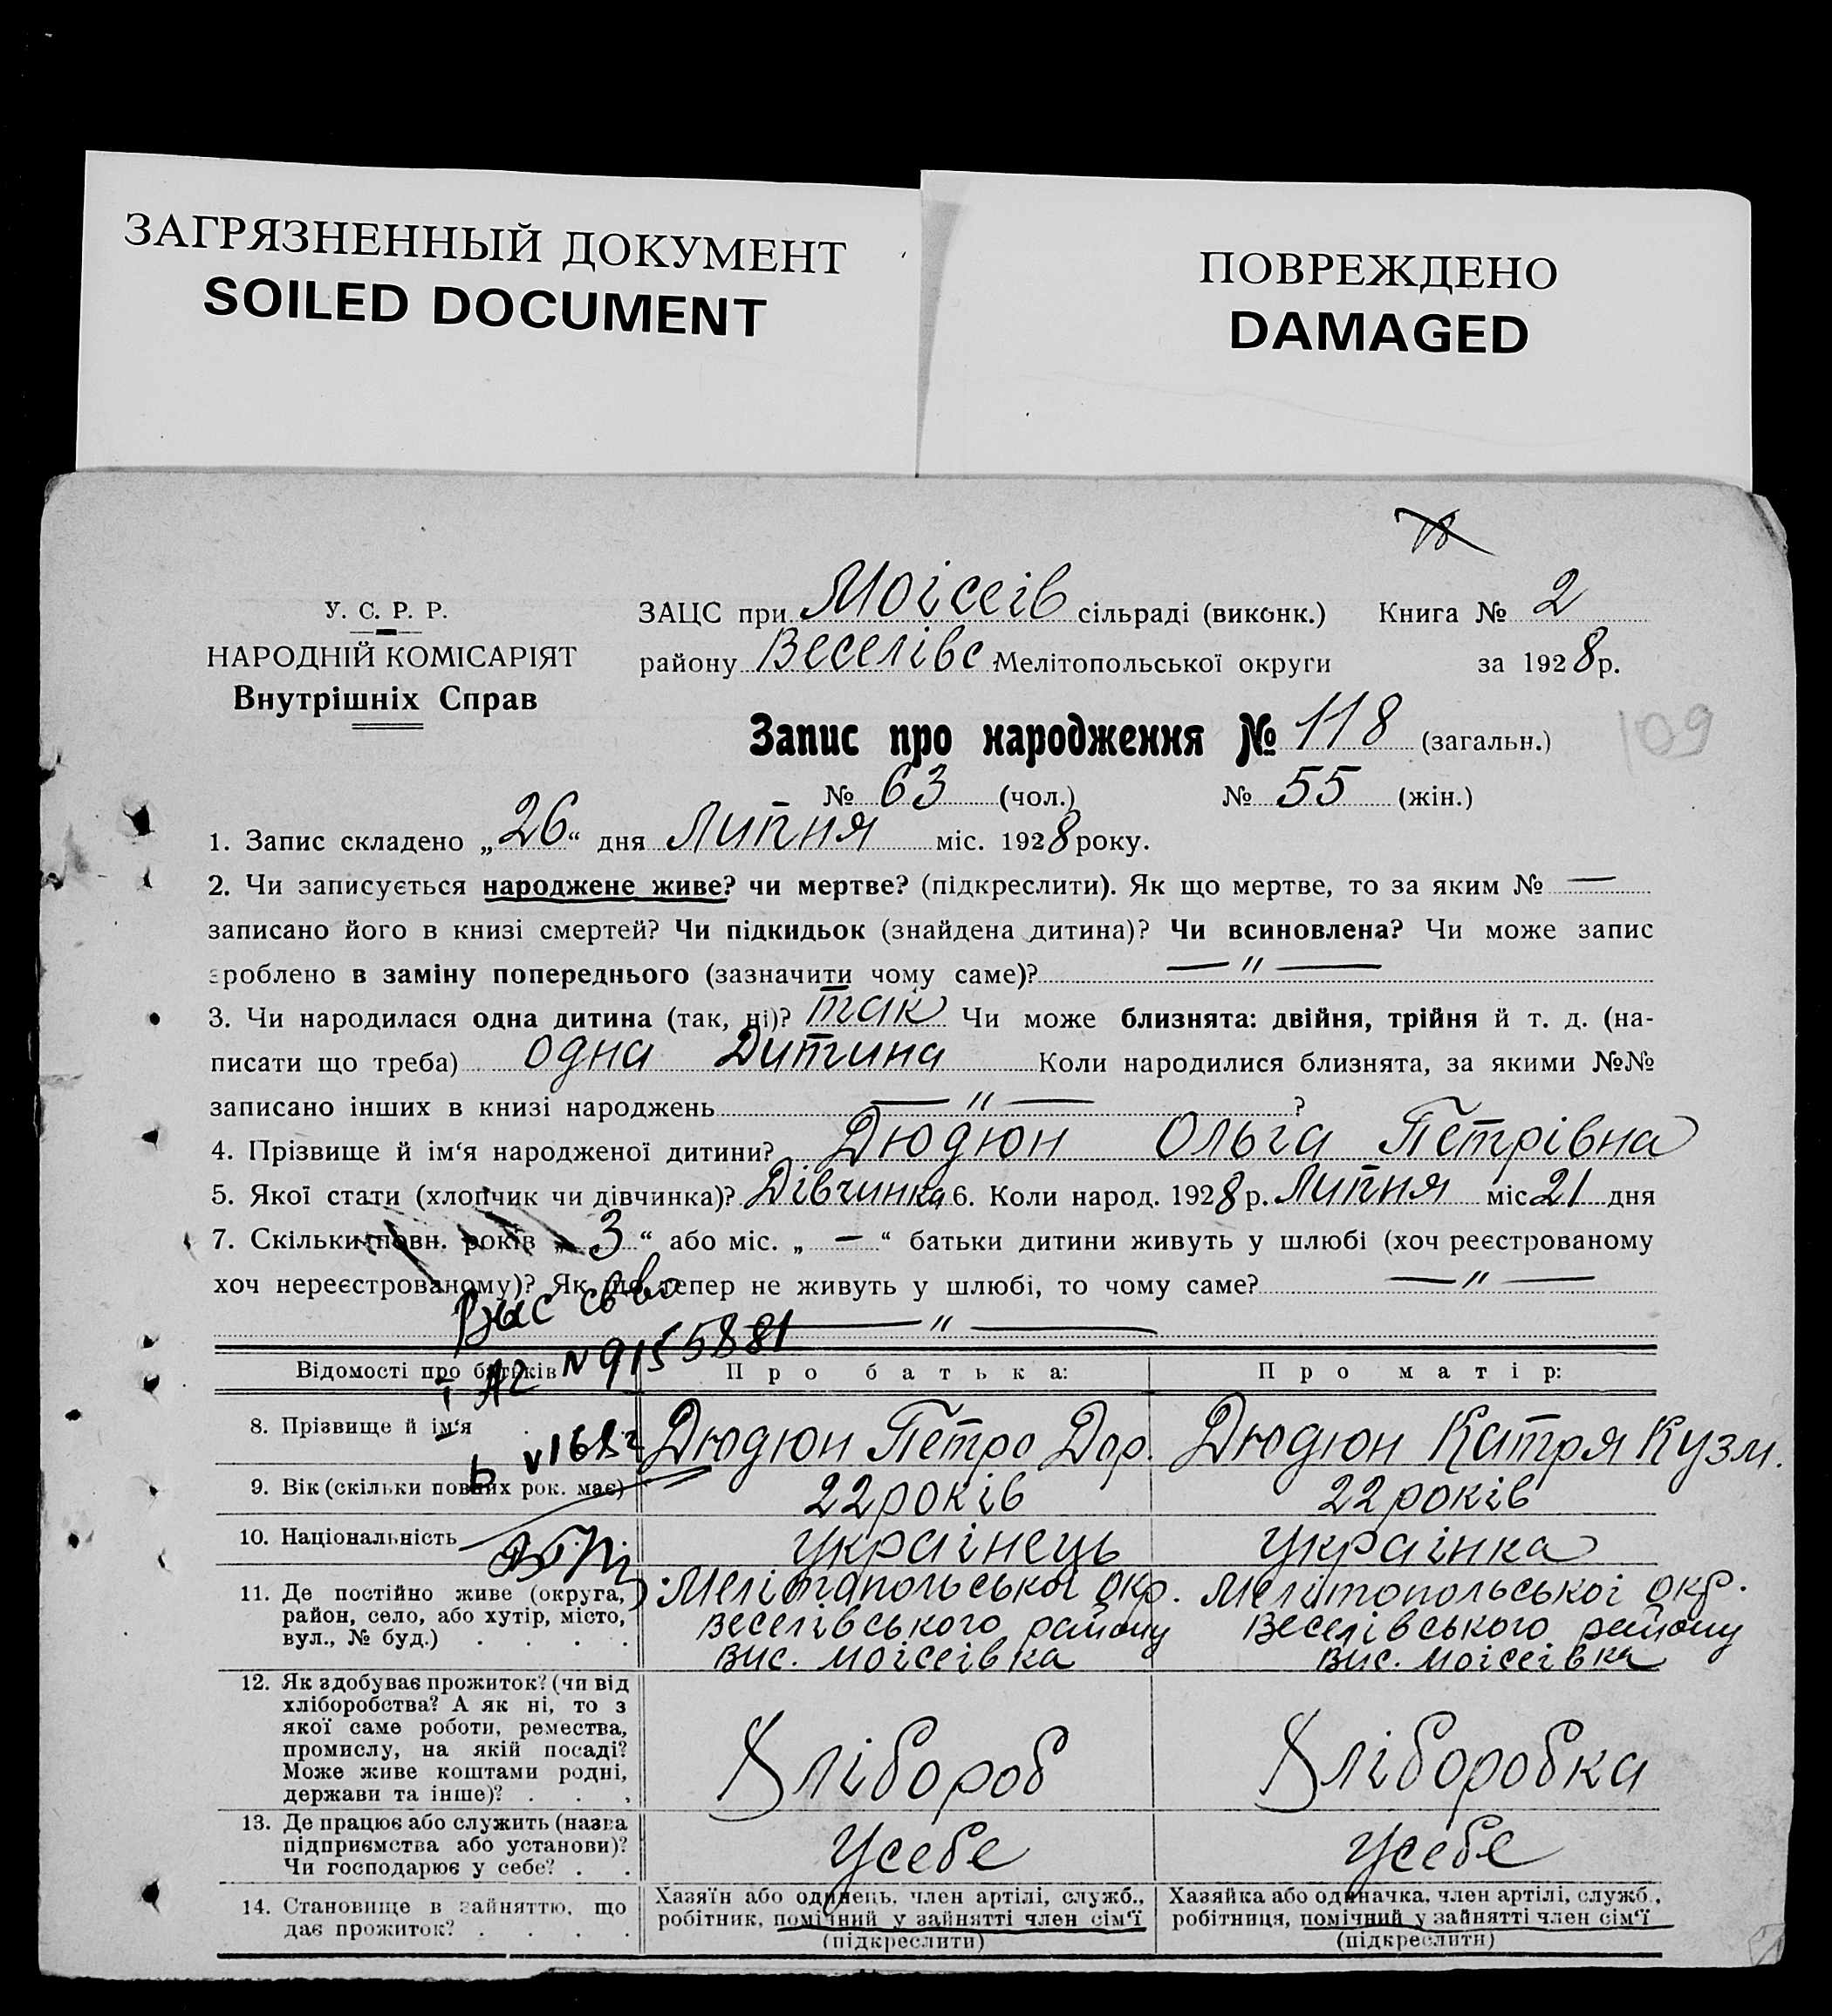 ЗАГРЯЗНЕННЫЙ ДОКУМЕНТ
SOILED DOCUMENT
ПОВРЕЖДЕНО
DAMAGED
У. С. Р. Р.
НАРОДНІЙ КОМІСАРІЯТ
Внутрішніх Справ
ЗАЦС при Моісеів сільраді (виконк.) Книга № 2
району Веселівс Мелітопольської округи за 1928 р.
Запис про народження № 118 (загальн.)
109
№ 63 (чол.) № 55 (жін.)
1. Запис складено „26“ дня Липня міс. 1928 року.
2. Чи записується народжене живе? чи мертве? (підкреслити). Як що мертве, то за яким № —
записано його в книзі смертей? Чи підкидьок (знайдена дитина)? Чи всиновлена? Чи може запис
зроблено в заміну попереднього (зазначити чому саме)? —〃 —
3. Чи народилася одна дитина (так, ні)? так Чи може близнята: двійня, трійня й т. д. (на-
писати що треба) одна Дитина Коли народилися близнята, за якими №№
записано інших в книзі народжень — 〃 — ?
4. Прізвище й ім‘я народженої дитини? Дюдюн Ольга Петрівна
5. Якої стати (хлопчик чи дівчинка)? Дівчинка 6. Коли народ. 1928 р. Липня міс 21 дня
7. Скільки повн. років „3“ або міс. „—“ батьки дитини живуть у шлюбі (хоч реєстрованому
хоч нереєстрованому)? Як що тепер не живуть у шлюбі, то чому саме? — 〃 —
— 〃 —
N 9155881
Відомості про батьків Про батька: Про матір:
8. Прізвище й ім‘я Дюдюн Петро Дор. Дюдюн Катря Кузм.
9. Вік (скільки повних рок. має) 22 років 22 років
10. Національність Украінець Украінка
11. Де постійно живе (округа, Мелітапольськоі окр. Мелітопольськоі окр.
район, село, або хутір, місто, Веселівського району Веселівського району
вул., № буд.) Вис. Моісеівка Вис. Моісеівка
12. Як здобуває прожиток? (чи від
хліборобства? А як ні, то з
якої саме роботи, ремества,
промислу, на якій посаді? Хлібороб Хліборобка
Може живе коштами родні,
держави та інше)?
13. Де працює або служить (назва
підприємства або установи)? Усебе Усебе
Чи господарює у себе?
14. Становище в зайняттю, що Хазяїн або одинець, член артілі, служб., Хазяйка або одиначка, член артілі, служб.,
дає прожиток? робітник, помічний у зайнятті член сім‘ї робітниця, помічний у зайнятті член сім‘ї
(підкреслити) (підкреслити)